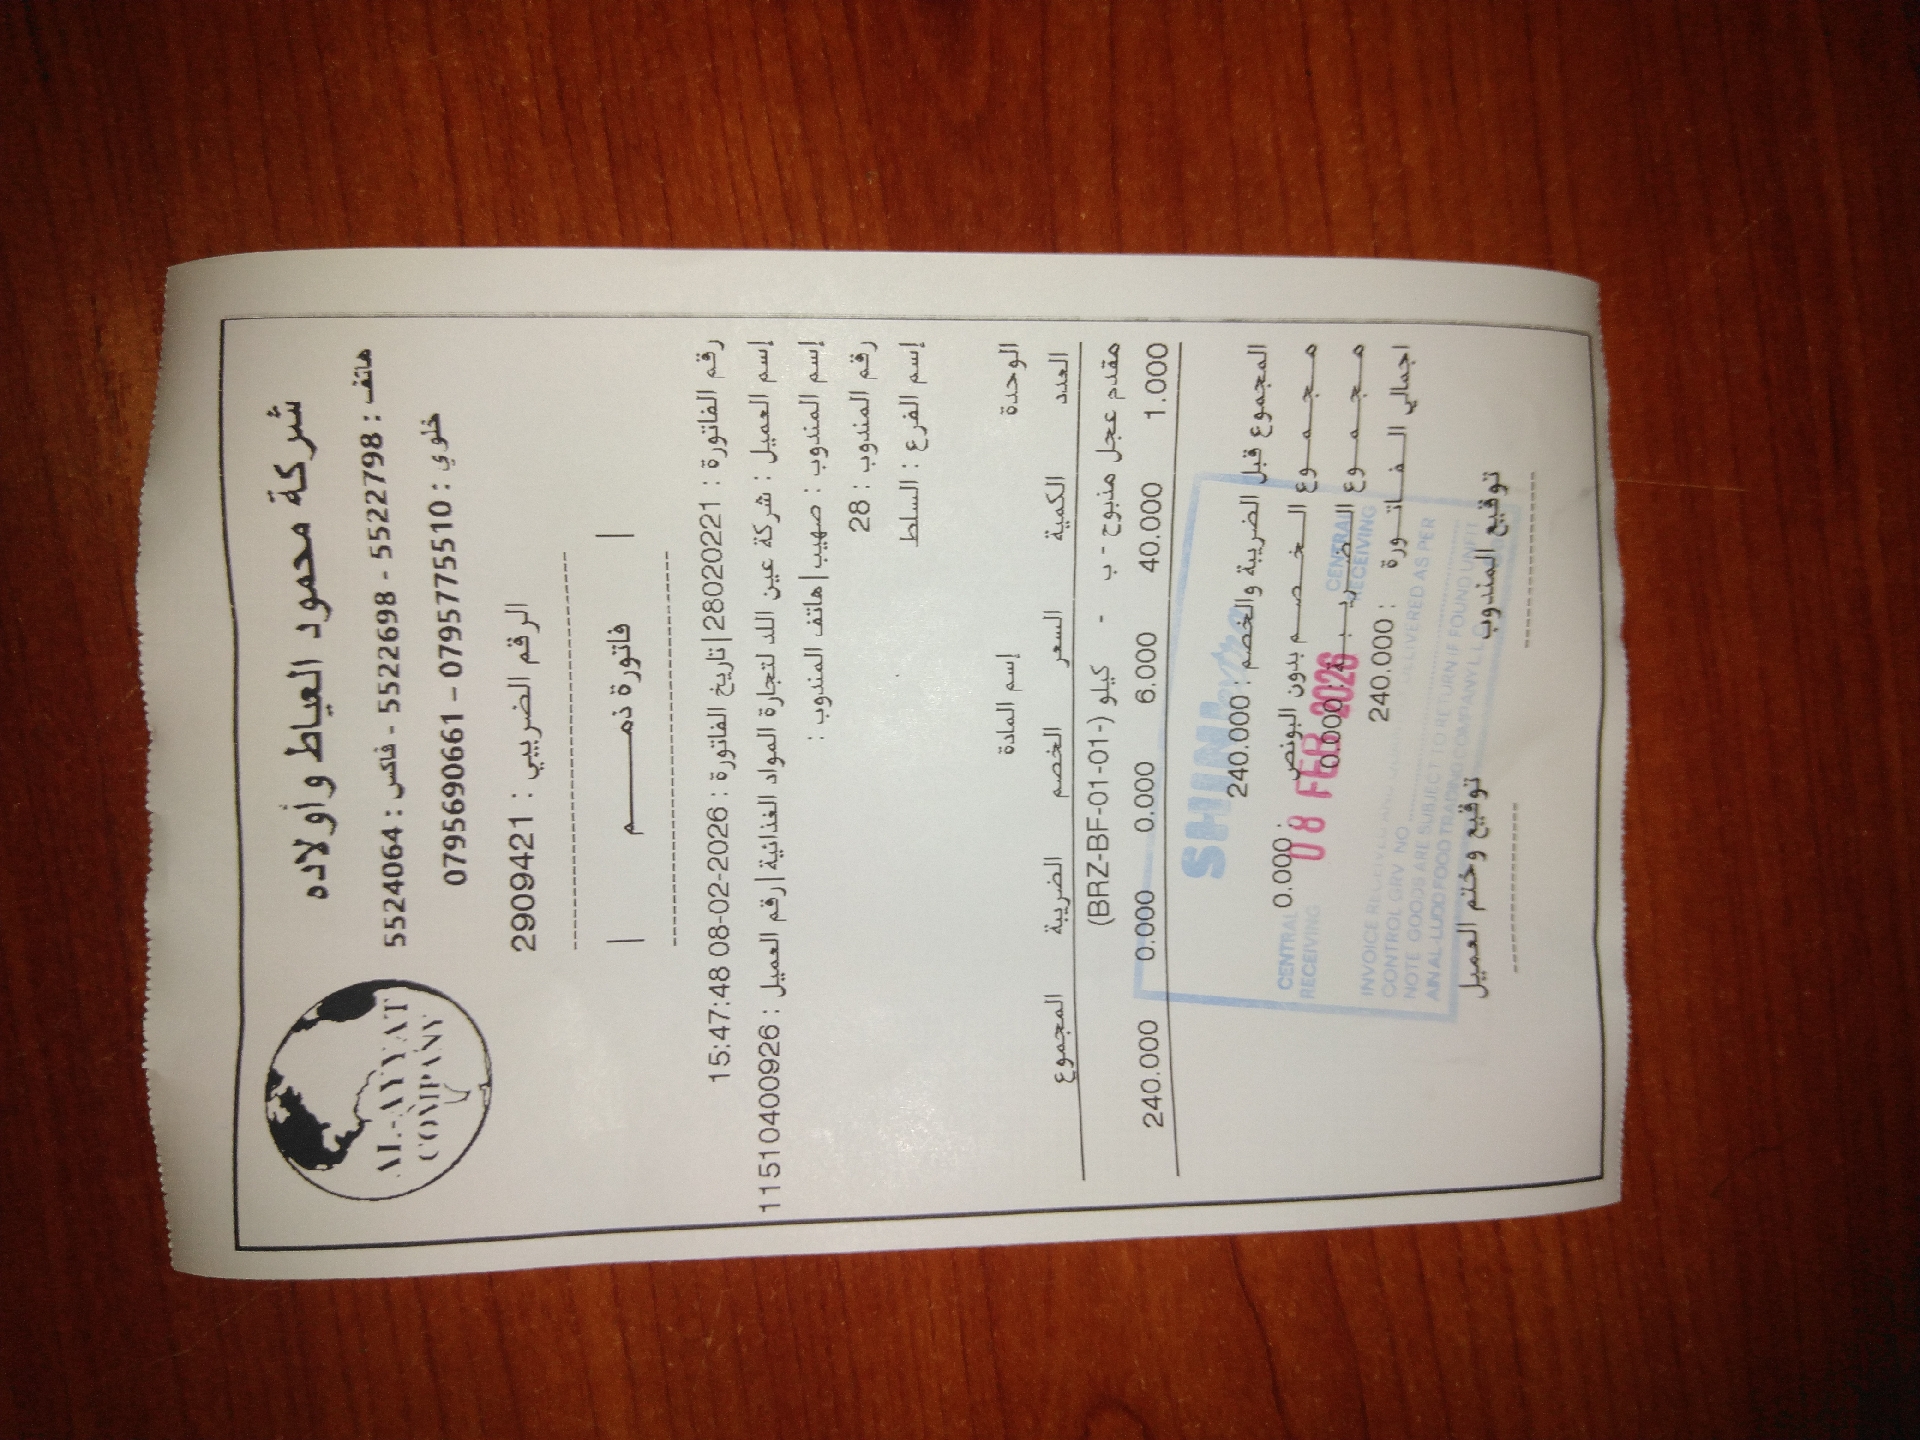 شركة محمود العياط وأولاده
AL-AYYAT
COMPANY
هاتف : 5522798 - 5522698 - فاكس : 5524064
خلوي : 0795775510 – 0795690661
الرقم الضريبي : 2909421
| فاتورة ذمـــــم |
رقم الفاتورة : 28020221|تاريخ الفاتورة : 2026-02-08 15:47:48
إسم العميل : شركة عين اللد لتجارة المواد الغذائية|رقم العميل : 11510400926
إسم المندوب : صهيب|هاتف المندوب :
رقم المندوب : 28
إسم الفرع : السلط
الوحدة إسم المادة
العدد الكمية السعر الخصم الضريبة المجموع
مقدم عجل مذبوح - ب - كيلو (-BRZ-BF-01-01)
1.000 40.000 6.000 0.000 0.000 240.000
المجموع قبل الضريبة والخصم : 240.000
مـجـمـوع الـخـصـم بدون البونص : 0.000
مـجـمـوع الـضـريـبـة : 0.000
اجمالي الـفـاتـورة : 240.000
CENTRAL
RECEIVING
08 FEB 2026
CENTRAL
RECEIVING
DELIVERED AS PER
CONTROL GRV NO
NOTE GOODS ARE SUBJECT TO RETURN IF FOUND UNFIT
AIN AL LUDD FOOD TRADING COMPANY L.L.C
توقيع المندوب
توقيع وختم العميل